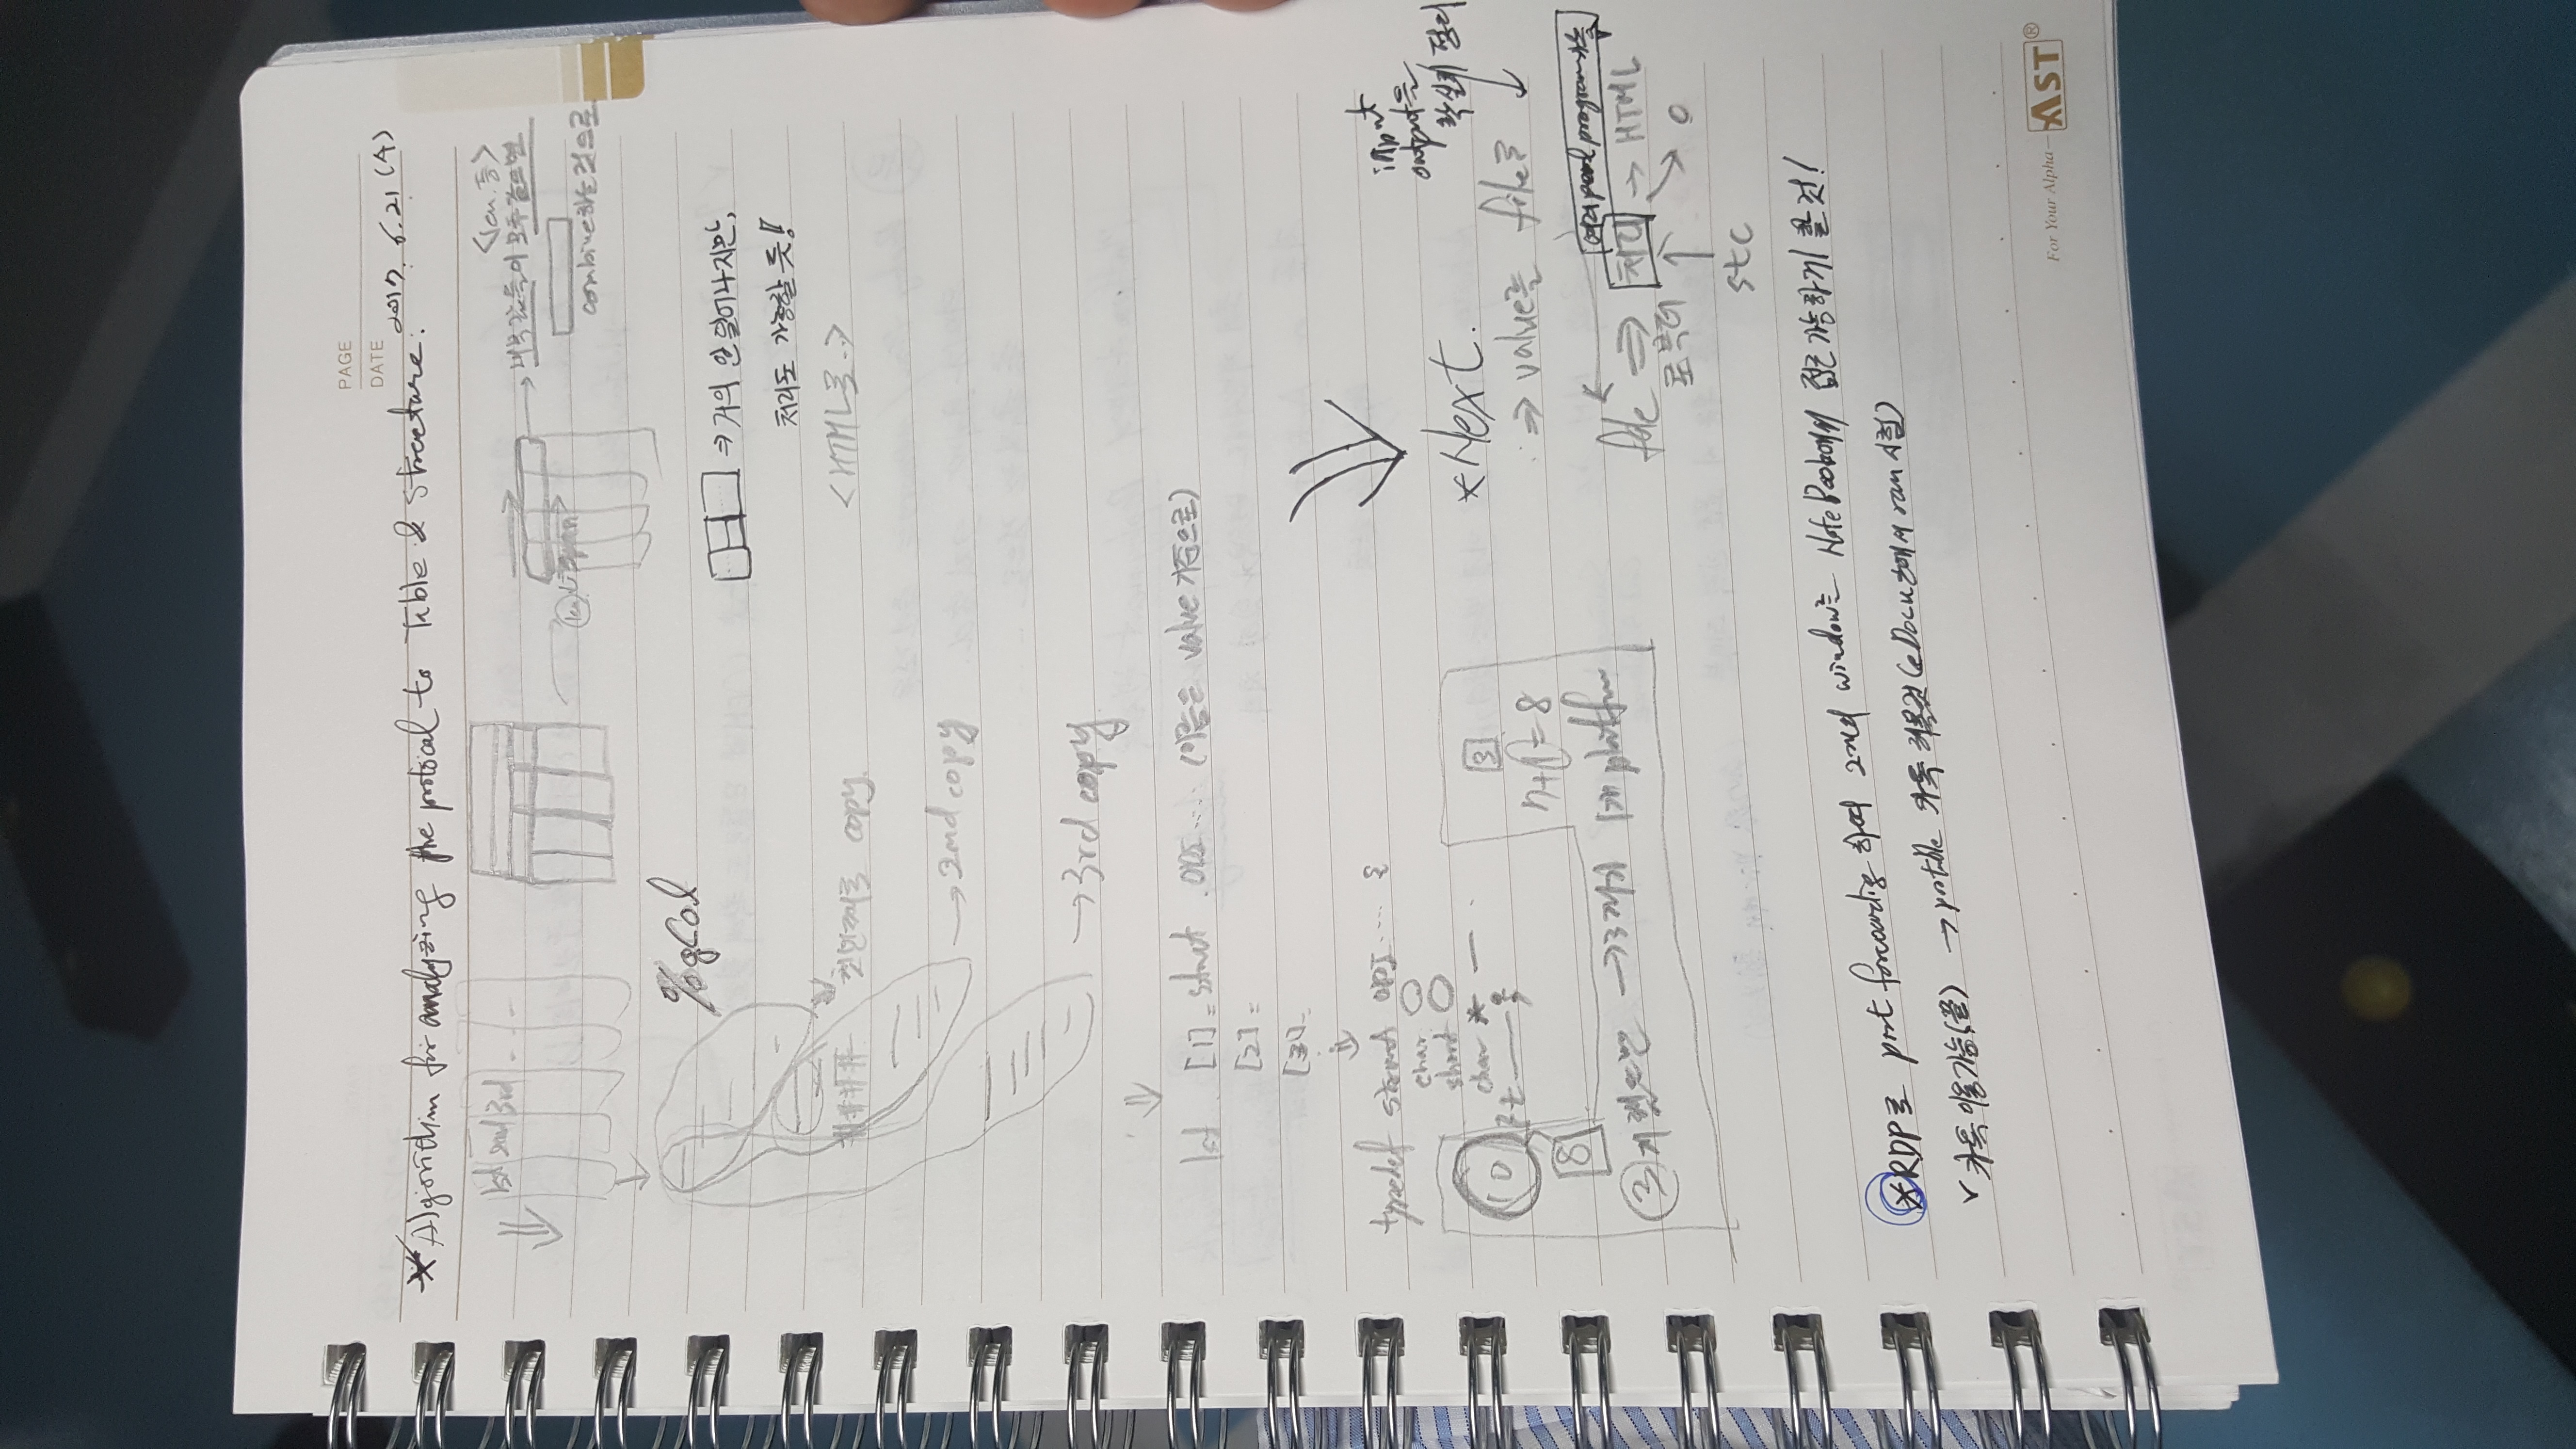 PAGE
DATE 2017. 6. 21 (수)
* Algorithm for analyzing the protocal to Table & Structure.
1st 2nd 3rd - - -
<len. 등>
내부 값들이 모두 같으면
len span
combine하는 것으로
%gCol
⇒ 거의 안 일어나지만,
처리도 가능할 듯!!
<HTML로..>
#### 첫번째로 copy.
→ 2nd copy
→ 3rd copy
⇓
1st [1] = struct OPI.... (이름은 value 기준으로)
[2] =
[3] =
typedef struct OPI.... {
char
short
char *
10
8
3
n+1=8
③개 했으면 → 3개가 1개 platform
*Next.
input
output을
확실히 정리
⇒ value를 file로
여러 program 가능
file ⇒ 처리 → HTML
로부터
stc
* RDP로 port forwarding 하여 2개의 window를 NoteBook에서 접근 가능하게 할 것!
v 카톡 이용가능(끝) → portable 카톡 해볼것 (eDocu에서 ran 시험)
For Your Alpha— AST®